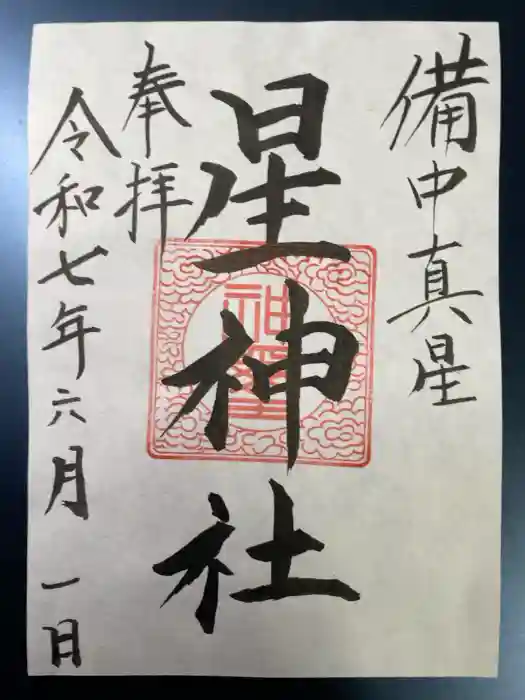 備中真星
星神社
奉拝
令和七年六月一日